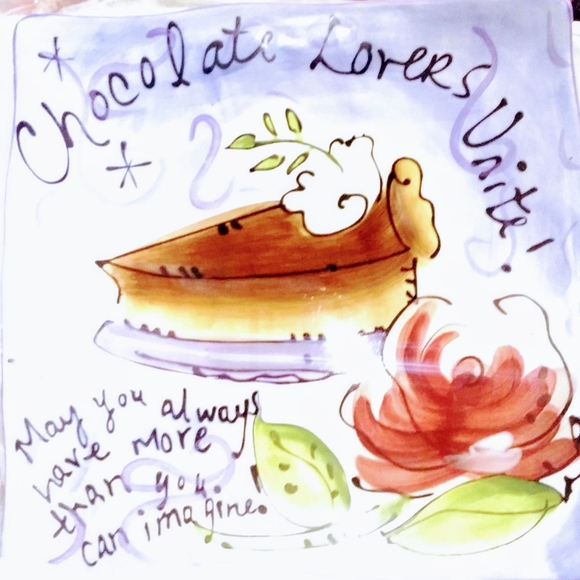 Chocolate Lovers Unite!
May you always
have more
than you
can imagine!